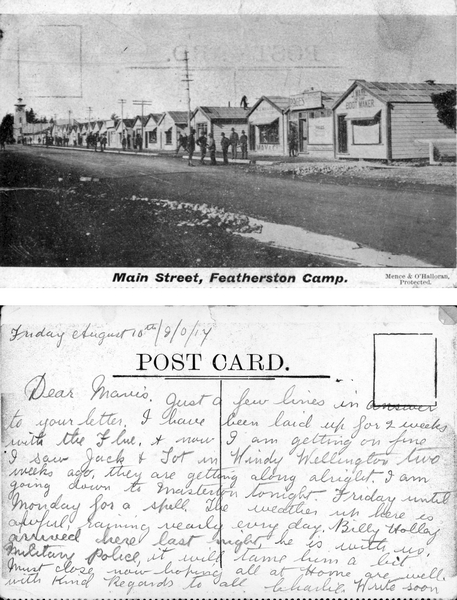 BOOT MAKER
Main Street, Featherston Camp.
Mence & O'Halloran,
Protected.
Friday August 10th/8/0/17
POST CARD.
Dear Mavis. Just a few lines in answer
to your letter. I have been laid up for 2 weeks
with the Flue. & now I am getting on fine
I saw Jack & Tot in Windy Wellington two
weeks ago. they are getting along alright. I am
going down to Masterton tonight. Friday until
Monday for a spell. The weather up here is
awful, raining nearly every day. Billy Holloy
arrived here last night he is with us.
Military Police, it will tame him a bit
Must close now hoping all at Home are well.
with Kind Regards to all Charlie. Write soon